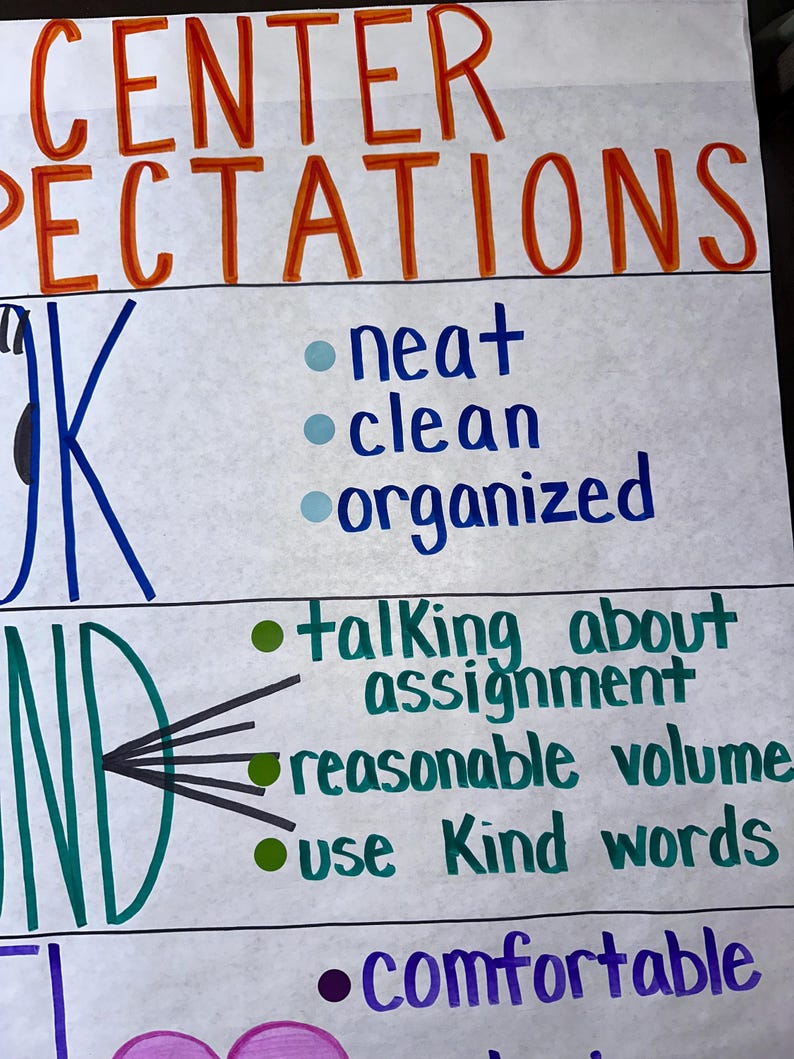 CENTER
PECTATIONS
OK
neat
clean
organized
ND
talking about
assignment
reasonable volume
use kind words
comfortable